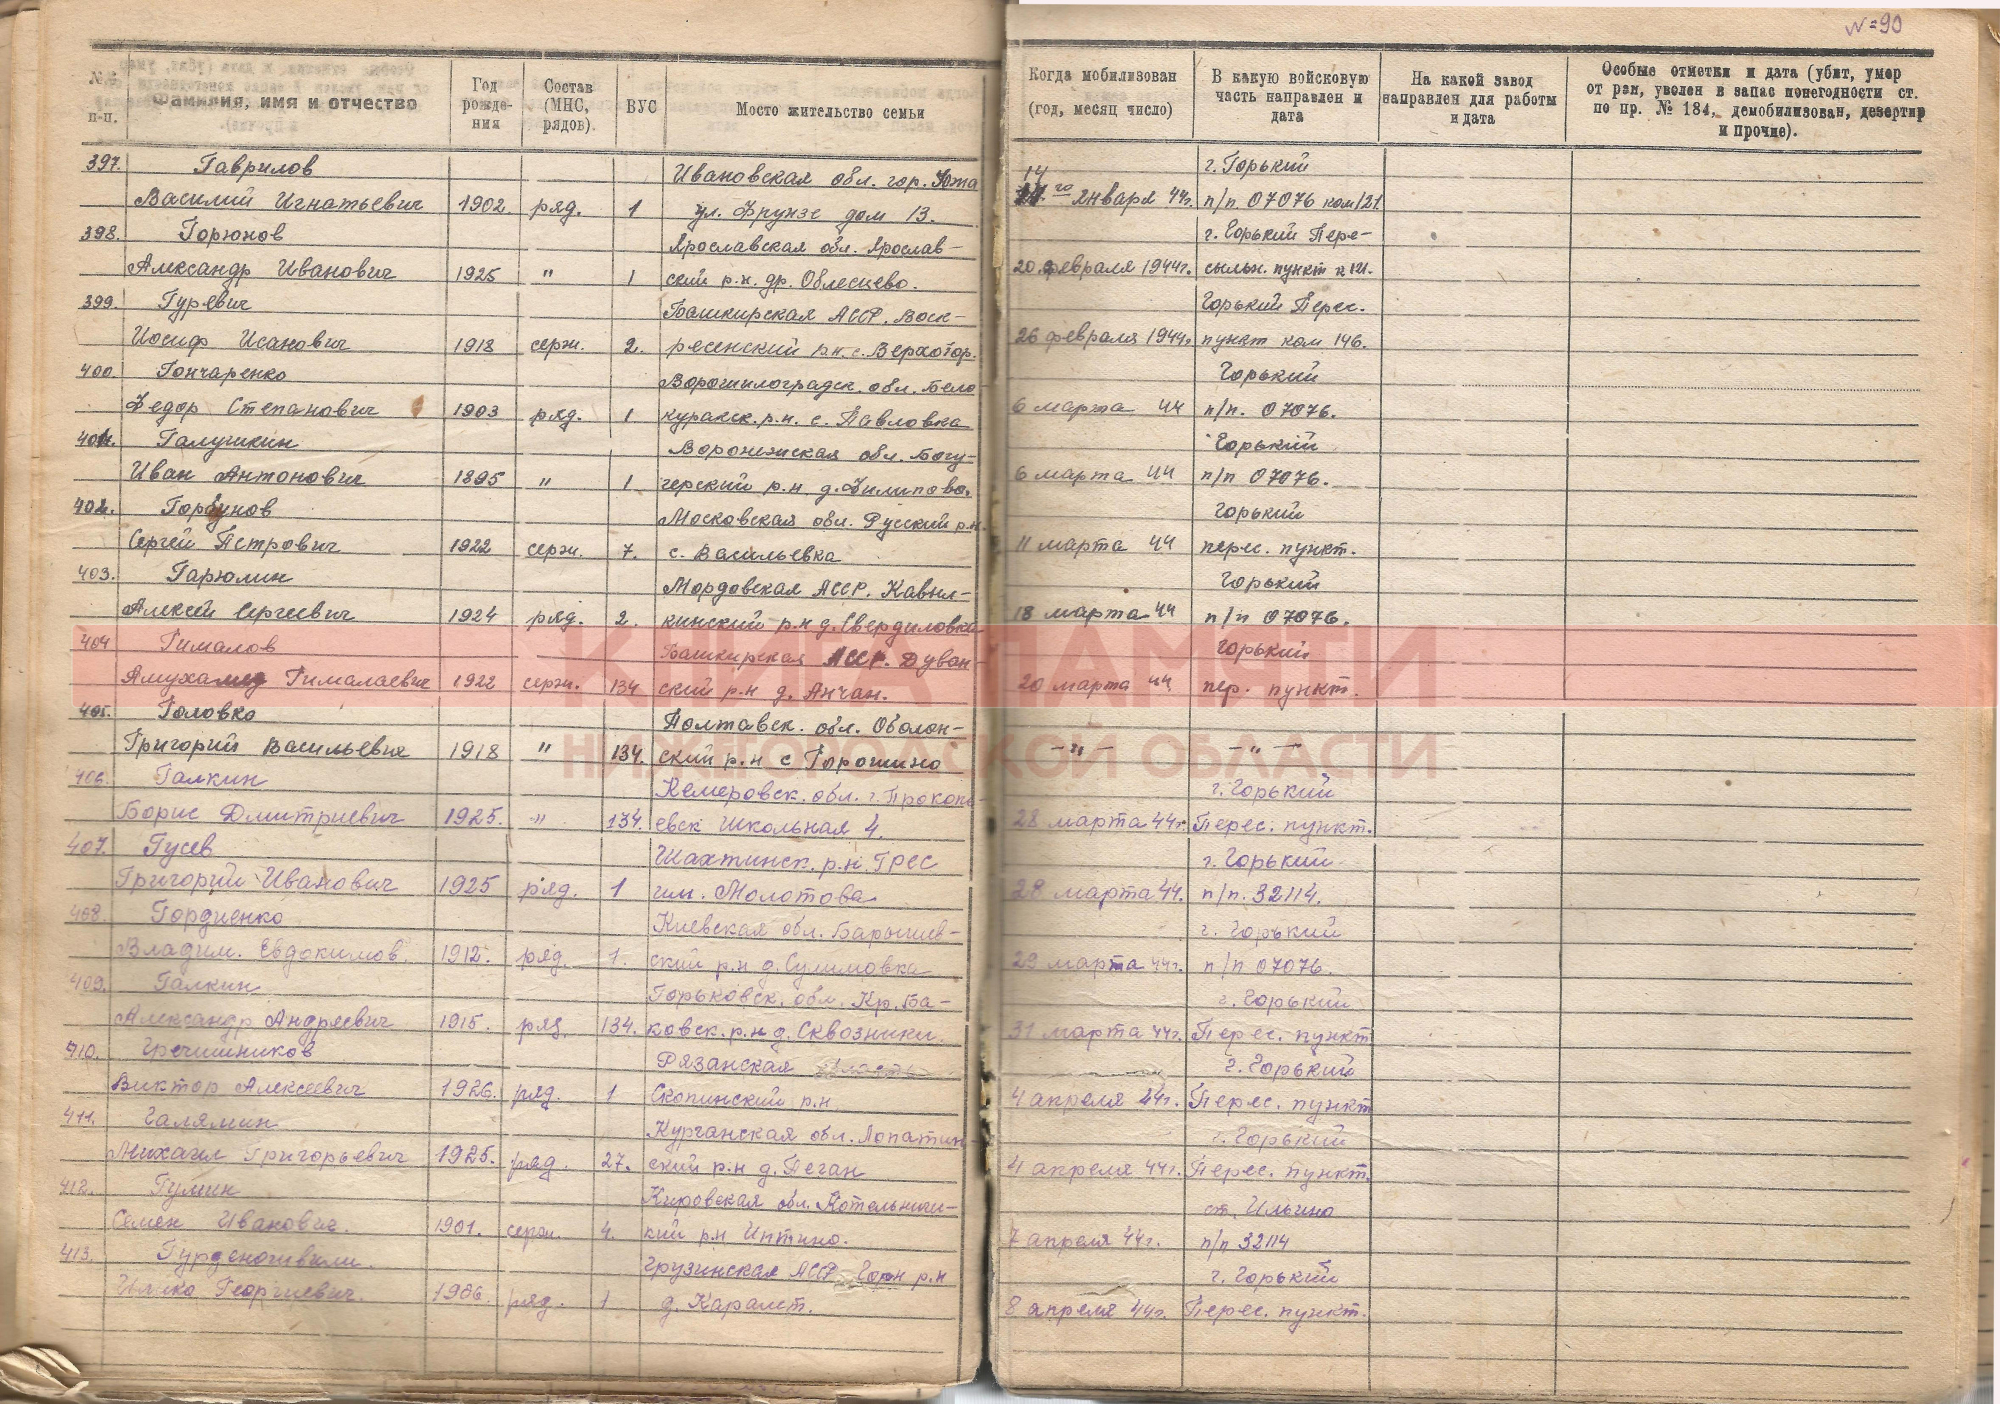 №=90
№№ п-п.
Фамилия, имя и отчество
Год рожде-ния
Состав (МНС, рядов).
ВУС
Мосто жительство семьи
Когда мобилизован (год, месяц число)
В какую войсковую часть направлен и дата
На какой завод направлен для работы и дата
Особые отметки и дата (убит, умер от рзн, уволен в запас понегодности ст. по пр. № 184, демобилизован, дезертир и прочие).
397. Гаврилов Ивановская обл. гор. Южа 14 г. Горький
Василий Игнатьевич 1902. ряд. 1 ул. Фрунзе дом 13. го января 44г. п/п. 07076 ком 121.
398. Горюнов Ярославская обл. Ярослав- г. Горький Пере-
Александр Иванович 1925 " 1 ский р.н. др. Облесцево. 20 февраля 1944г. сыльн. пункт к 121.
399. Гуревич Башкирская АССР. Воск- Горький Перес.
Иосиф Исакович 1918 серж. 2. ресенский р.н. с. Верхотор. 26 февраля 1944г. пункт ком 146.
400. Гончаренко Ворошилоградск. обл. Бело- Горький
Федор Степанович 1903 ряд. 1 куракск. р.н. с. Павловка 6 марта 44 п/п. 07076.
401. Галушкин Воронежская обл. Богу- Горький
Иван Антонович 1895 " 1 черский р.н д. Филипово. 6 марта 44 п/п 07076.
402. Горбунов Московская обл. Русский р.н. Горький
Сергей Петрович 1922 серж. 7. с. Васильевка 11 марта 44 перес. пункт.
403. Гарюлин Мордовская АССР. Кавыл- Горький
Алексей Сергеевич 1924 ряд. 2. кинский р.н д. Свердиловка 18 марта 44 п/п 07076.
404 Гималов Башкирская АССР. Дуван- Горький
Амухамед Гималаевич 1922 серж. 134 ский р.н д. Анчан. 20 марта 44 пер. пункт.
405. Головко Полтавск. обл. Оболон-
Григорий Васильевич 1918 " 134. ский р.н с Горошино – " – – " –
406. Галкин Кемеровск. обл. г. Прокопь- г. Горький
Борис Дмитриевич 1925. " 134. евск Школьная 4. 28 марта 44г. Перес. пункт.
407. Гусев Шахтинск. р.н. ГРЕС г. Горький
Григорий Иванович 1925 ряд. 1 им. Молотова 28 марта 44. п/п. 32114.
408. Гордиенко Киевская обл. Барышев- г. Горький
Владим. Евдокимов. 1912. ряд. 1. ский р.н д. Сулимовка 29 марта 44г. п/п 07076.
409. Галкин Горьковск. обл. Кр. Ба- г. Горький
Александр Андреевич 1915. ряд. 134. ковск. р.н д. Сквозники. 31 марта 44г. Перес. пункт
410. Гречишников Рязанская область г. Горький
Виктор Алексеевич 1926. ряд. 1 Скопинский р.н 4 апреля 44г. Перес. пункт
411. Галямин Курганская обл. Лопатин- г. Горький
Михаил Григорьевич 1925. ряд. 27. ский р.н д. Пеган 4 апреля 44г. Перес. пункт.
412. Гулин Кировская обл. Котельнич- ст. Ильино
Семен Иванович. 1901. серж. 4. кий р.н Интино. 7 апреля 44г. п/п 32114
413. Грузинская АССР Гори р.н г. Горький
Георгиевич. 1906. ряд. 1 д. Каралет. 8 апреля 44г. Перес. пункт.
КНИГА ПАМЯТИ
НИЖЕГОРОДСКОЙ ОБЛАСТИ